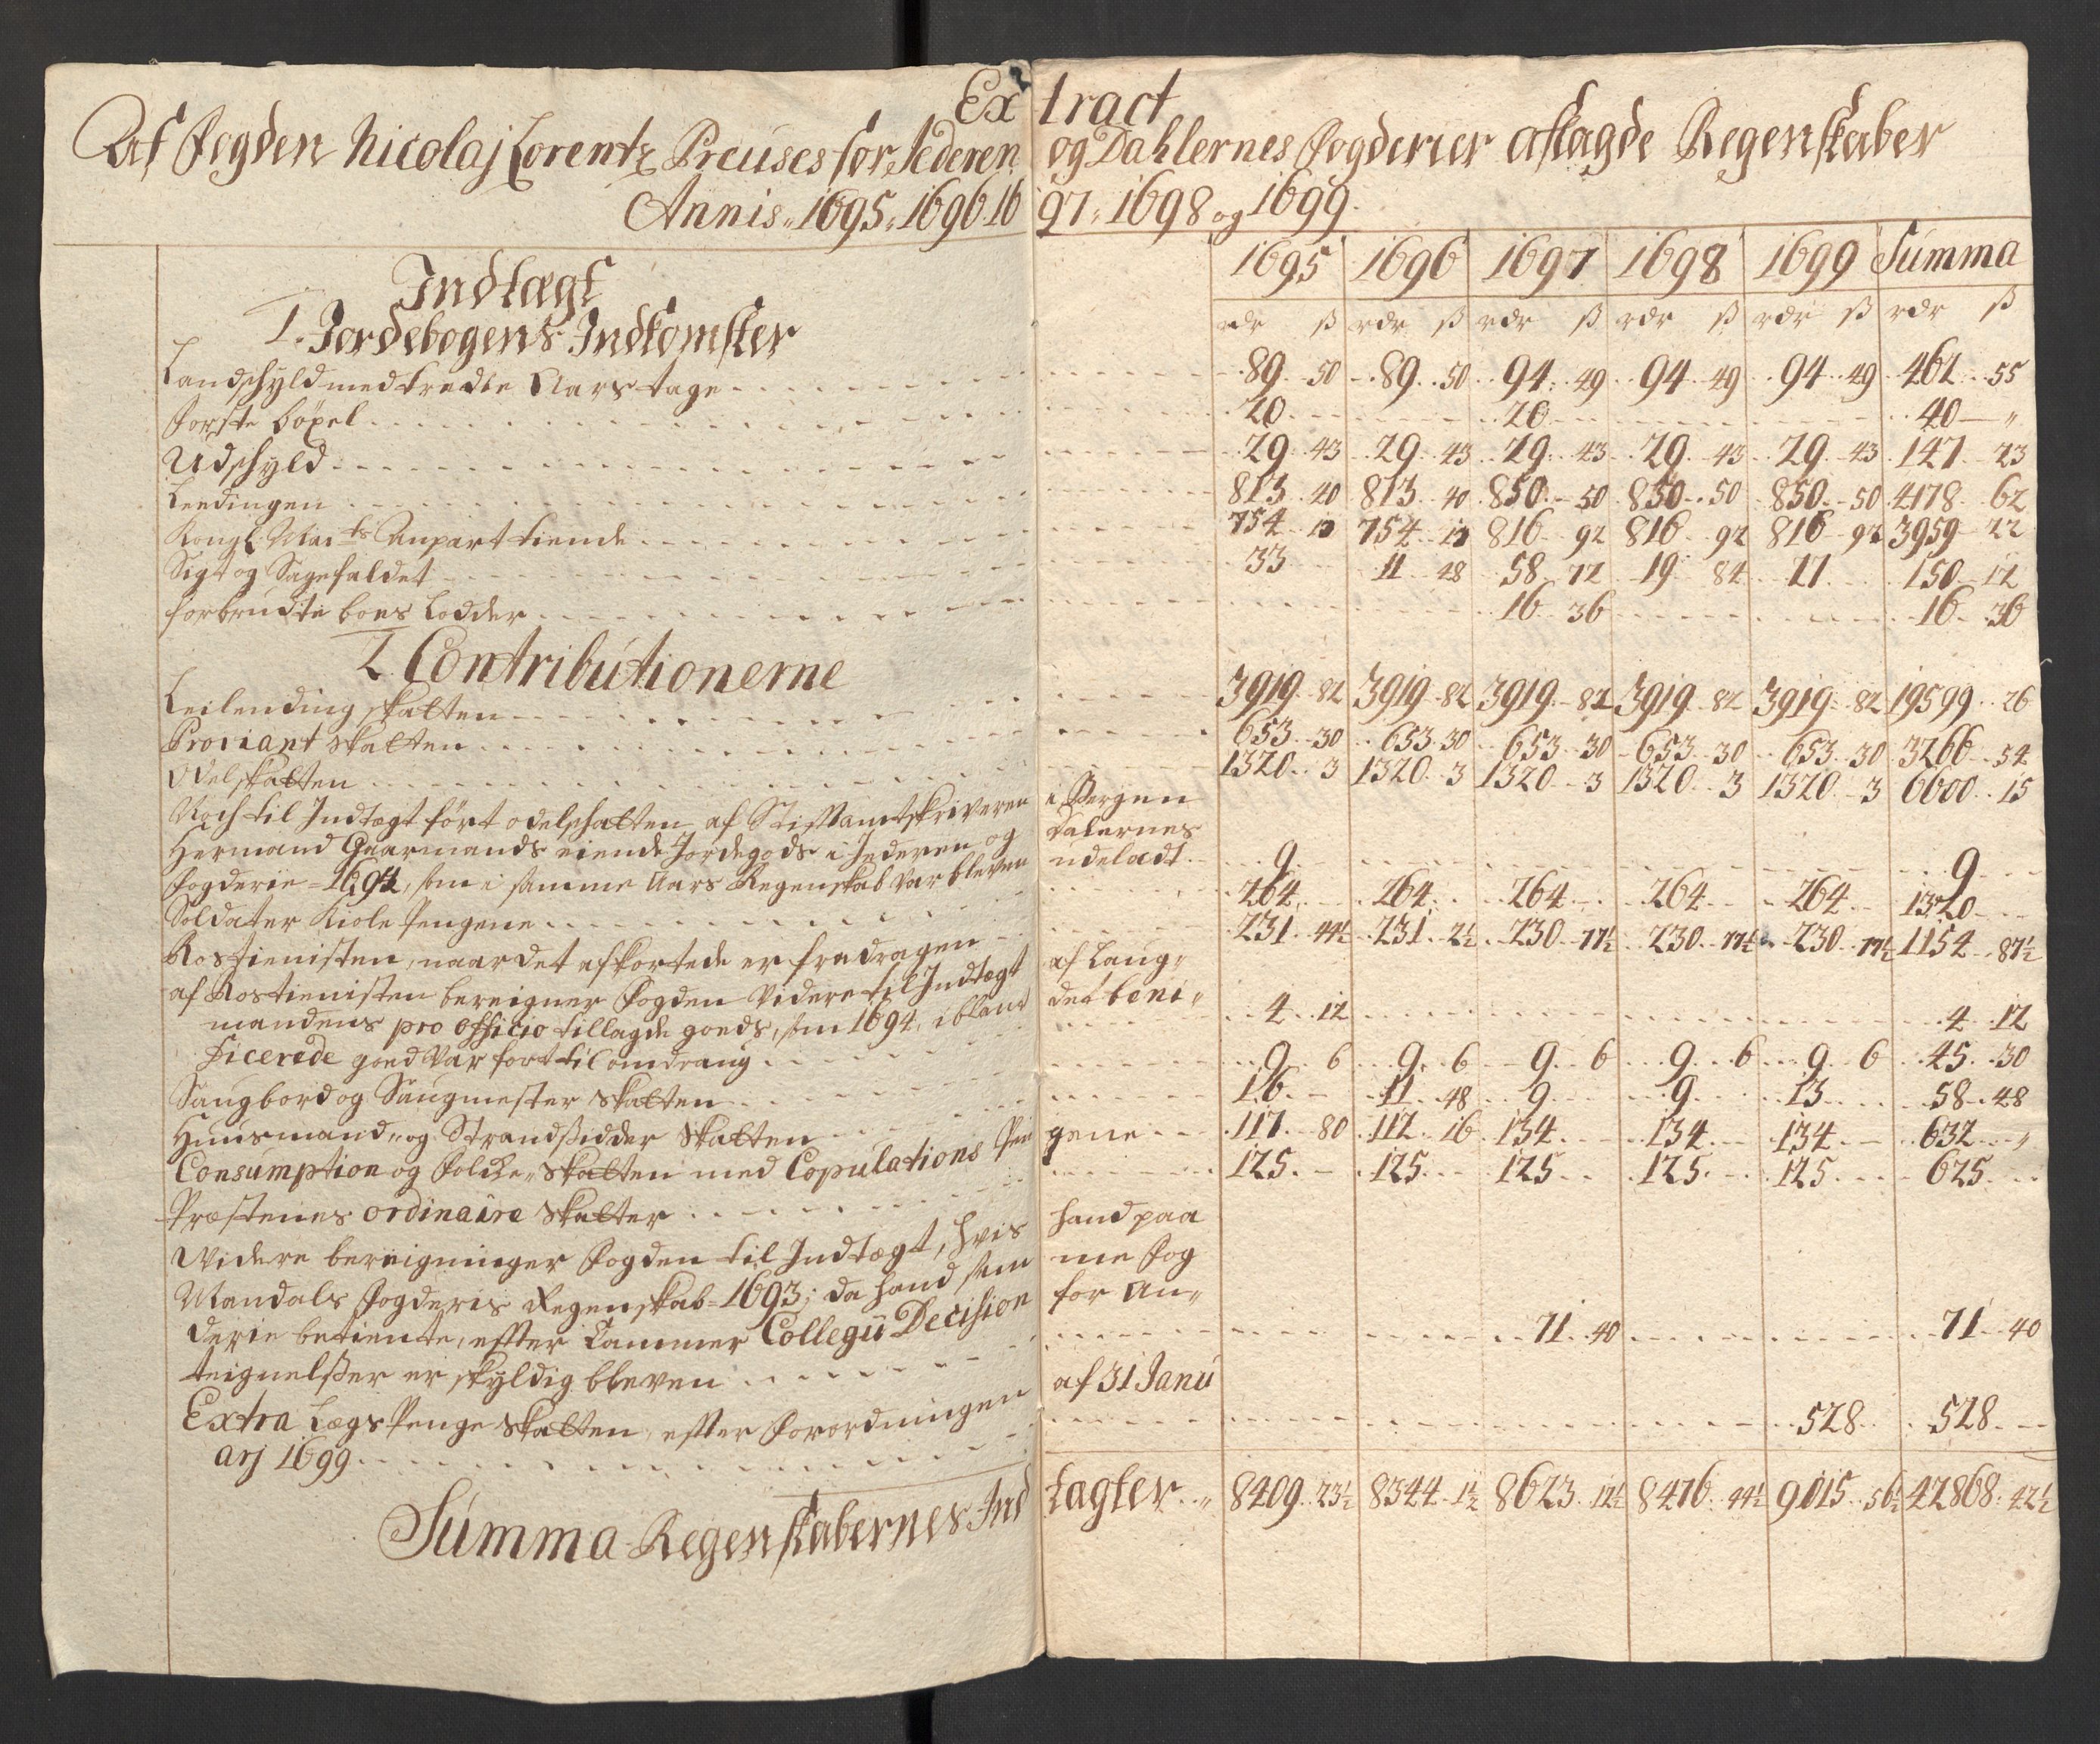 Extract
Af Fogden Nicolaj Lorentz Preuses for Jederen og Dahlernes Fogderier aflagde Regenskaber
Annis 1695, 1696. 1697, 1698 og 1699.
1695 1696 1697 1698 1699 Summa
rdr ß rdr ß rdr ß rdr ß rdr ß rdr ß
Indtægt
1. Jordebogens Indkomster
Landschyld med tredie Aars tage 89 50 89 50 94 49 94 49 94 49 462 55
Forste bøxel 20 20 40
Udschyld 29 43 29 43 29 43 29 43 29 43 147 23
Leedingen 813 40 813 40 850 50 850 50 850 50 4178 62
Kongl. Mai.ts Anpart tiende 754 13 754 13 816 92 816 92 816 92 3959 22
Sigt og Sagefaldet 33 11 48 58 72 19 84 27 150 12
forbrudte boes Lodder 16 36 16 36
2. Contributionerne
Leilending skatten 3919 82 3919 82 3919 82 3919 82 3919 82 19599 26
Proviant skatten 653 30 653 30 653 30 653 30 653 30 3266 54
Odelskatten 1320 3 1320 3 1320 3 1320 3 1320 3 6600 15
Noch til Indtægt ført odelschatten af Stiftamtskriveren i Bergen
Hermand Gaarmands eiende Jordegods i Jederen og Dalernes
fogderie 1694, som i samme Aars Regenskab var bleven udeladt 9 9
Soldater Kiole Pengene 264 264 264 264 264 1320
Rostienisten, naar det afkortede er fradragen 231 44½ 231 2½ 230 77½ 230 77½ 230 77½ 1154 87½
af Rostienisten bereigner Fogden videre til Indtægt af Laug-
mandens pro officio tillagde goeds, som 1694, iblant det beni-
ficerede goed var fort til omdraug 4 12 4 12
Saugbord og Saugmester skatten 9 6 9 6 9 6 9 6 9 6 45 30
Huusmand- og Strandsidder skatten 16 11 48 9 9 13 58 48
Consumption og Folcke skatten med Copulations Pengene 117 80 112 16 134 134 134 632
Præstenes ordinaire skatter 125 125 125 125 125 625
Widere bereigninger Fogden til Indtægt, hvis hand paa
Mandals Fogderis Regenskab 1693; da hand samme Fog
derie betiente, effter Cammer Collegii Decision for An-
teignelsser er skyldig bleven 71 40 71 40
Extra Lægs Penge skatten, effter Forordningen af 31 Janu
arj 1699 528 528
Summa Regenskabernes Indtægter 8409 23½ 8344 1½ 8623 12½ 8476 44½ 9015 56½ 42868 42½